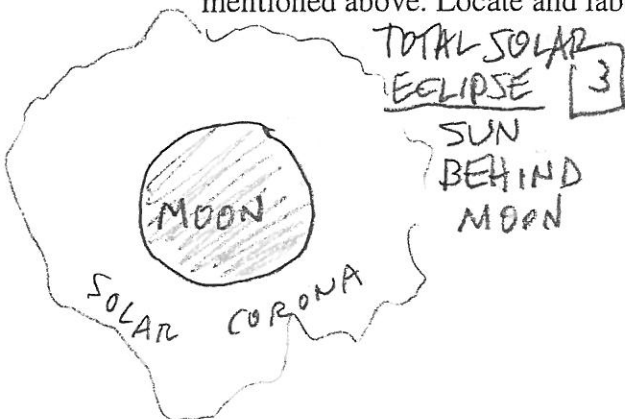 mentioned above. Locate and lab
TOTAL SOLAR
ECLIPSE 3
SUN
BEHIND
MOON
MOON
SOLAR CORONA